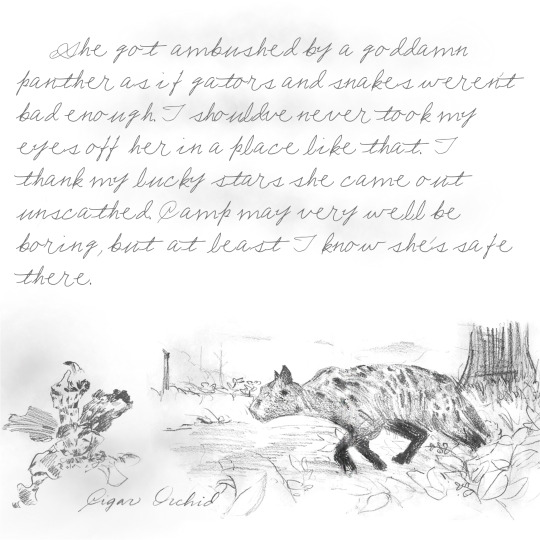 She got ambushed by a goddamn
panther as if gators and snakes weren't
bad enough. I shouldve never took my
eyes off her in a place like that. I
thank my lucky stars she came out
unscathed. Camp may very well be
boring, but at least I know she's safe
there.
Cigar Orchid